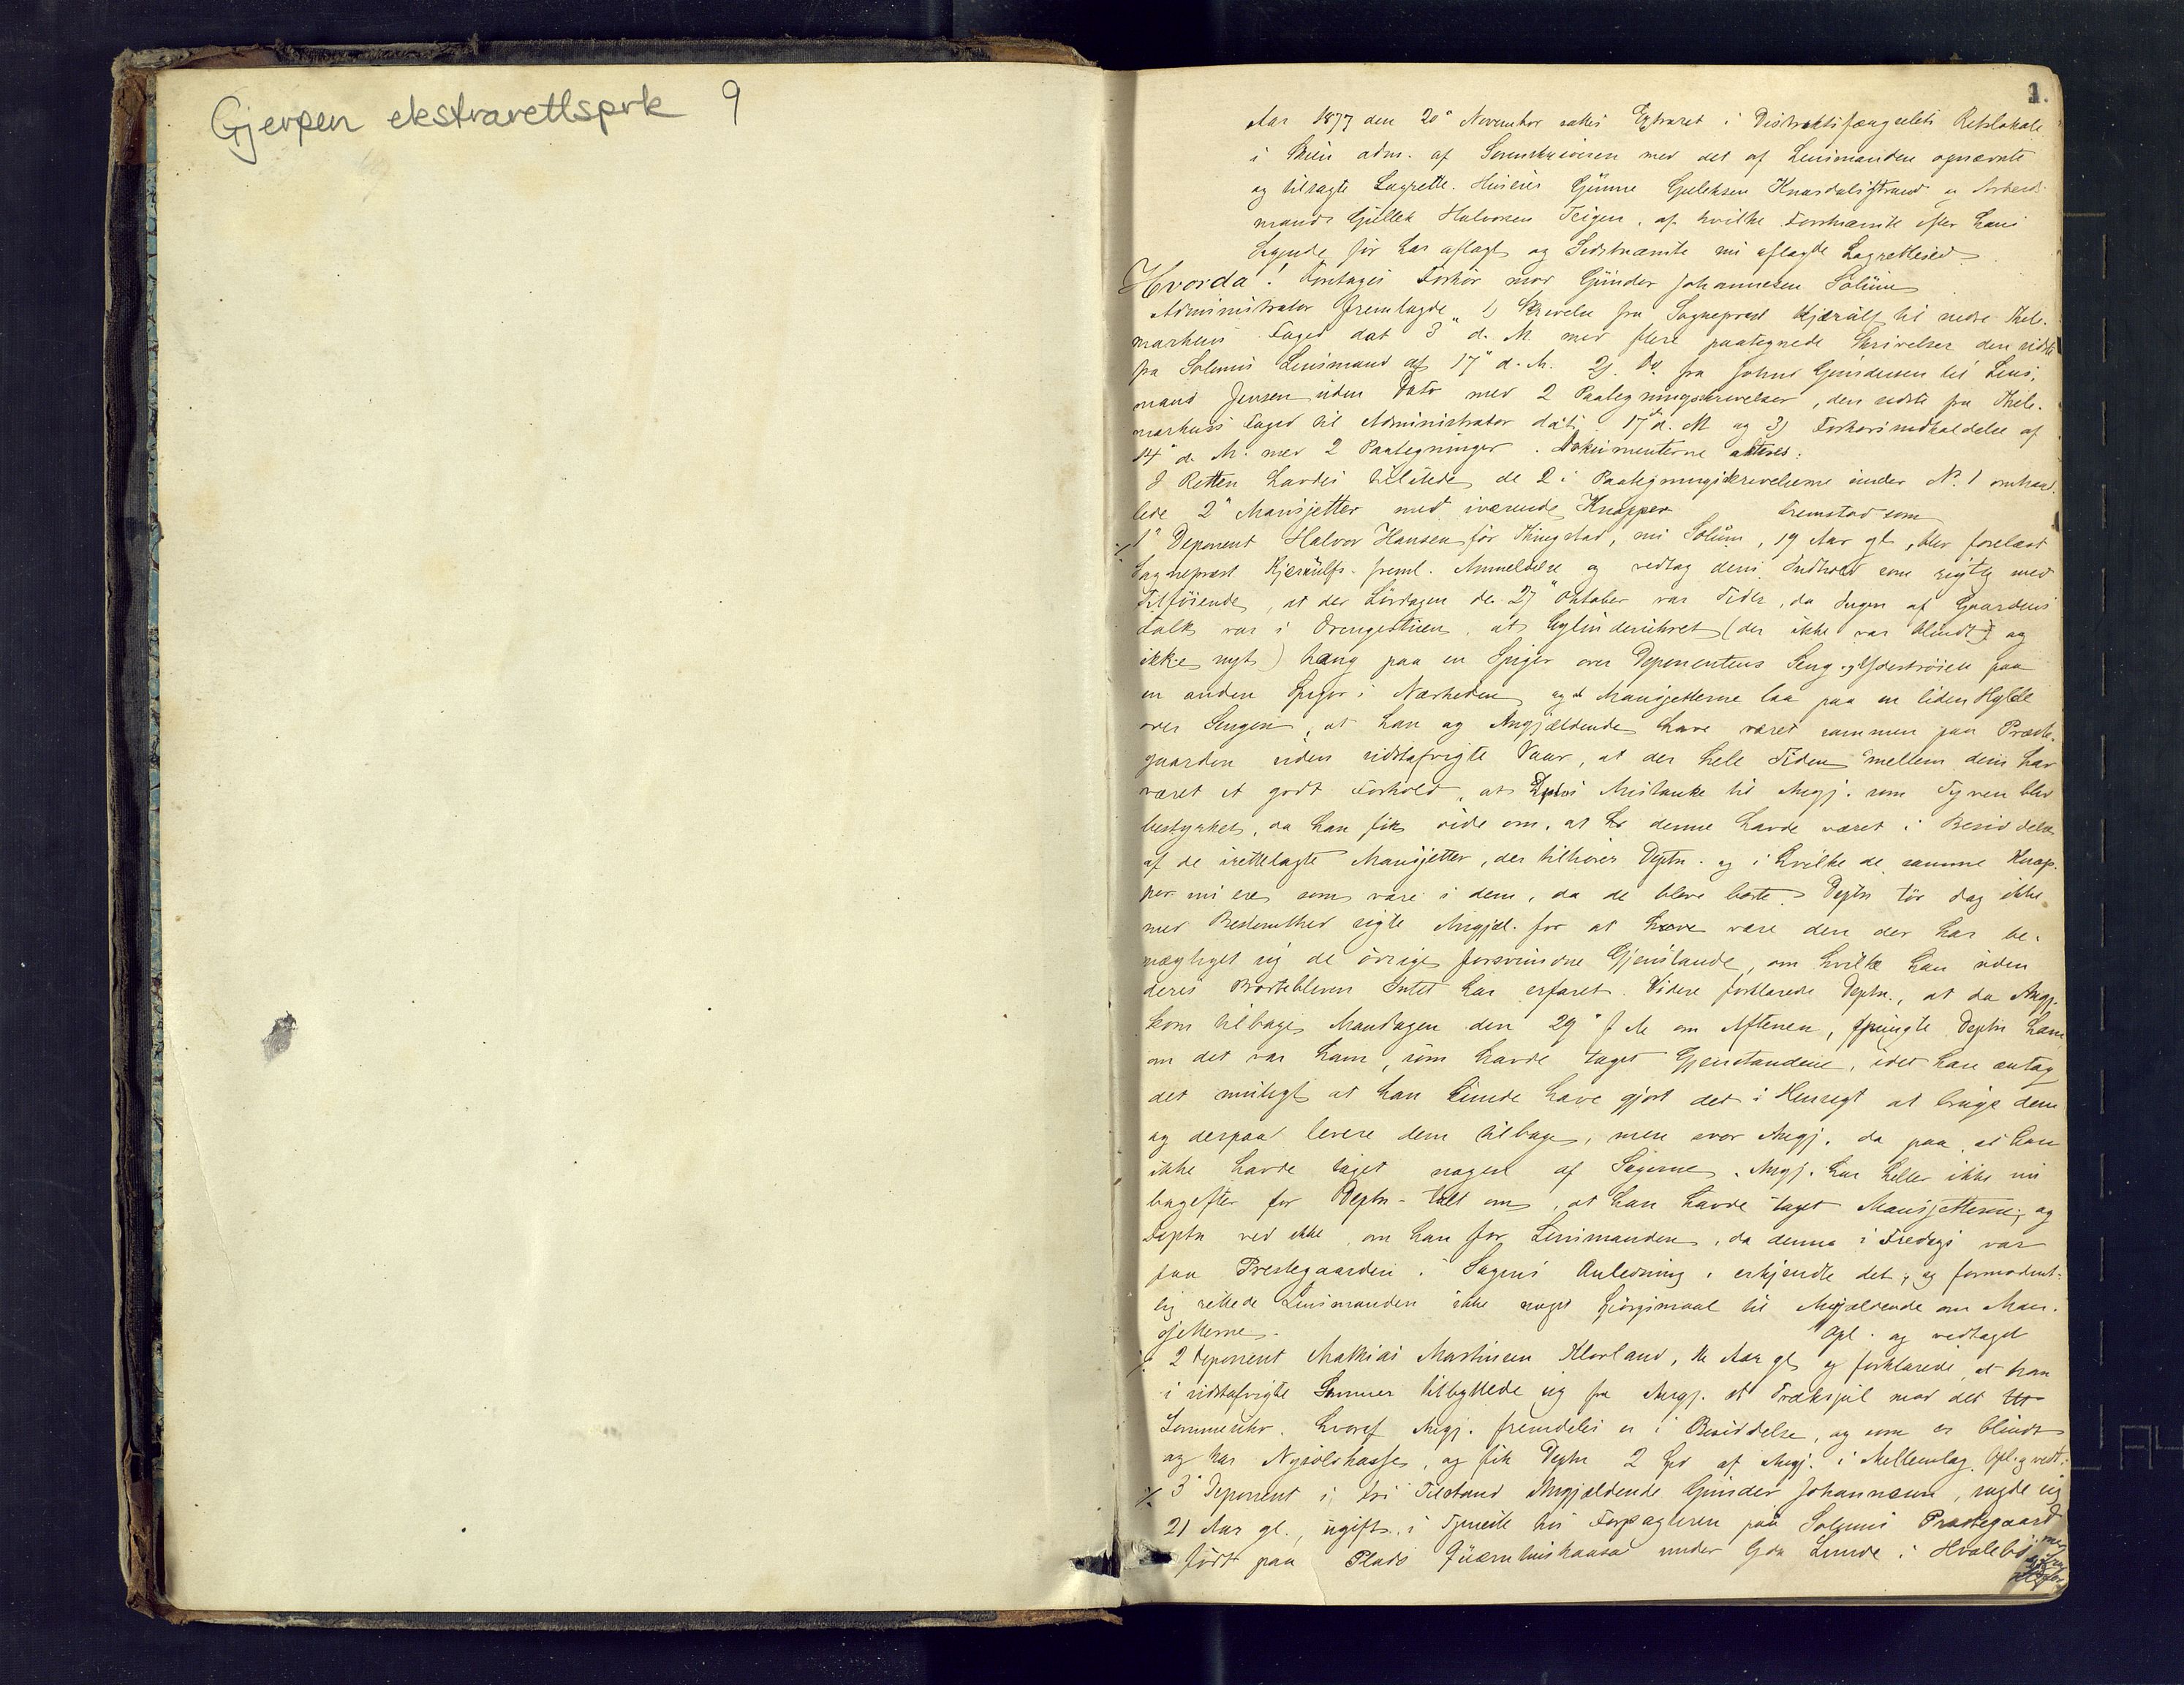 Gjerpen ekstrarettsprk 9
1.
Aar 1877 den 20de November sattes Extraret i Distriktsfængselets Retslokale
i Skien adm. af Sorenskriveren med det af Lensmanden opnævnte
og tilsagte Lagrette. Huseier Gunne Gulleksen Knardalsstrand og Arbeids-
mand Gullek Halvorsen Teigen, af hvilke Førstnævnte efter hans
Sigende før har aflagt og Sidstnævnte nu aflagde Lagrettesed
Hvorda! Foretages Forhør mod Gunder Johannesen Solum
Administrator fremlagde 1) Skrivelse fra Sogneprest Kjerulf til nedre Thele-
markens Foged dat 3 d. M. med flere paategnede Skrivelser den sidste
fra Solums Lensmand af 17 d. M. 2) Do fra John Gundersen til Lens-
mand Jensen uden Dato med 2 Paategningsskrivelser, den sidste fra Thele-
markens Foged til Administrator dat. 17 d. M og 3) Forhørsindkaldelse af
14 d. M. med 2 Paategninger. Dokumenterne akteres:
I Retten havdes tilstede de 2 i Paategningsskrivelserne under No. 1 omhand-
lede 2 Mansjetter med iværende Knapper Fremstod som
1 Deponent Halvor Hansen før Ringstad, nu Solum, 19 Aar gl, blev forelæst
Sogneprest Kjerulfs freml. Anmeldelse og vedtog dens Indhold som rigtig med
Tilføiende, at der Lørdagen de 27 Oktober var Tider, da Ingen af Gaardens
Folk var i Drengestuen, at Cylinderuhret (der ikke var blindt og
ikke nyt) hang paa en Spiger over Deponentens Seng, Ydertrøien paa
en anden Spiger i Nærheden og at Mansjetterne laa paa en liden Hylde
over Sengen, at han og Angjældende have været sammen paa Præste-
gaarden siden sidstafvigte Vaar, at der hele Tiden mellem dem har
været et godt Forhold, at Dptns Mistanke til Angj. som Tyven blev
bestyrket, da han fik vide om, at denne havde været i Besiddelse
af de irettelagte Mansjetter, der tilhører Deptn. og i hvilke de samme Knap-
per nu ere som vare i dem, da de bleve borte. Deptn tør dog ikke
med Bestemthed sigte Angjæl. for at være den der har be-
mægtiget sig de øvrige forsvundne Gjenstande, om hvilke han siden
deres Borteblivem Intet har erfaret. Videre forklarede Deptn., at da Angj.
kom tilbage Mandagen den 29 f M om Aftenen, spurgte Deptn ham
om det var ham, som havde taget Gjenstandene, idet han antog
det muligt at han kunde have gjort det i Hensigt at bruge dem
og derpaa levere dem tilbage, men svor Angj. da paa, at han
ikke havde taget noget af Sagerne. Angj. har heller ikke nu
bagefter for Deptn. talt om, at han havde taget Mansjetterne, og
Deptn ved ikke, om han for Lensmanden, da denne i Fredags var
paa Prestegaarden i Sagens Anledning, erkjendte det, og formodent-
lig rettede Lensmanden ikke noget Spørgsmaal til Angjældende om Man-
sjetterne. Opl. og vedtaget
2 Deponent Mathias Martinsen Klovland, Aar gl, og forklarede, at han
i sidstafvigte Sommer tilbyttede sig fra Angj. et Trækspil mod det
Lommeuhr, hvoraf Angj. fremdeles er i Besiddelse, og som er blindt
og har Nysølvkasse, og fik Deptn 2 Spd af Angj. i Mellemlag. Opl. og vedt.
3 Deponent i fri Tilstand Angjældende Gunder Johannesen, sagde sig
21 Aar gl., ugift, i Tjeneste hos Forpagteren paa Solums Prestegaard
født paa Plads under Gdn Lunde i